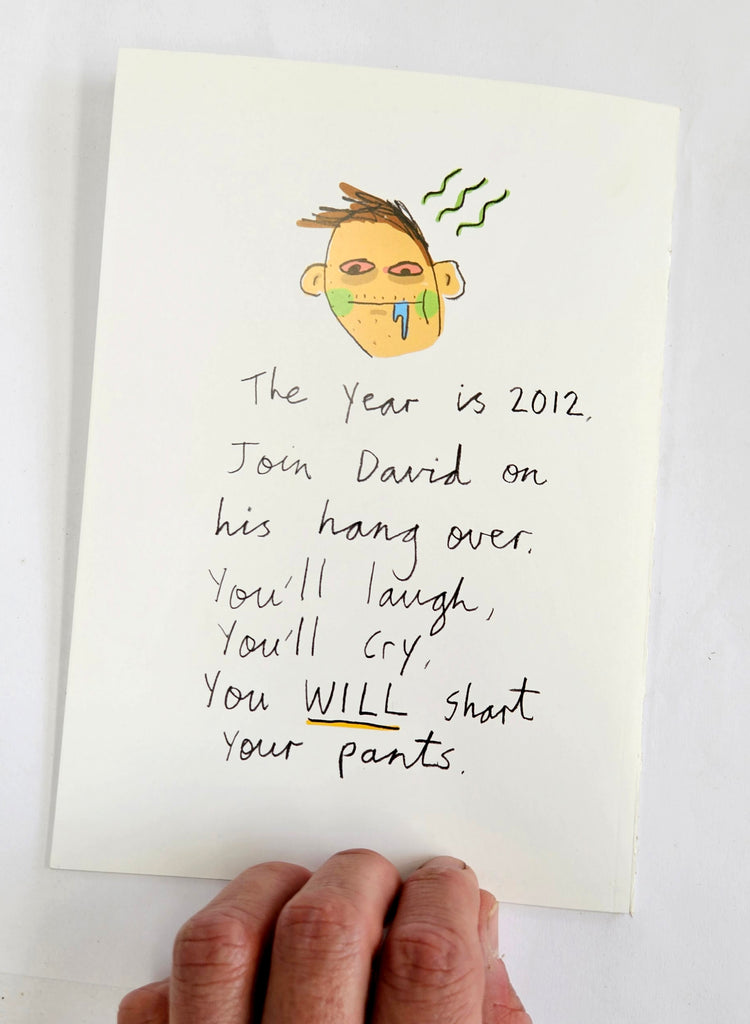 The Year is 2012.
Join David on
his hang over.
You'll laugh,
You'll cry,
You WILL shart
Your pants.